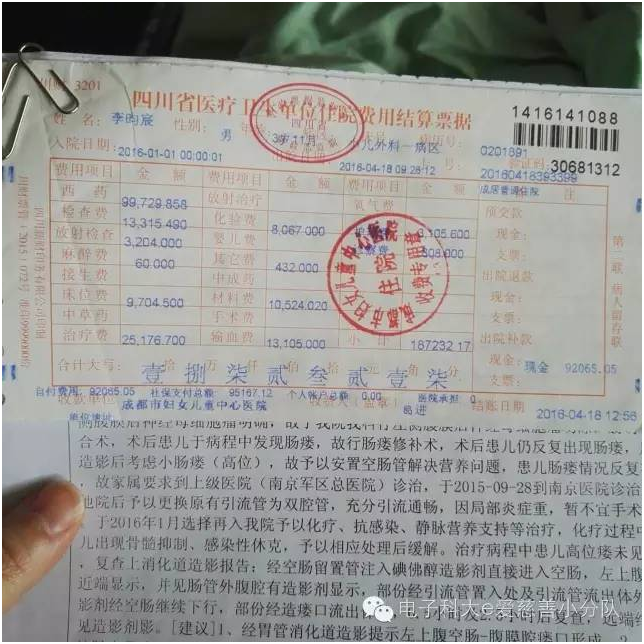 川财 3201
四川省医疗卫生单位住院费用结算票据
1416141088
姓名: 李昀宸 性别: 男 3岁11月 小儿外科一病区 0201891
验证码: 30681312
入院日期: 2016-01-01 00:00:01 2016-04-18 09:28:12 20160418393399
费用项目 金额 费用项目 金额 金额 注
西药 99,729.858 放射治疗 氧气费 成居普通住院 预交款
检查费 13,315.490 化验费 8,067.000 3,105.600 现金:
放射检查 3,204.000 婴儿费 508.000 支票:
麻醉费 60.000 其它费 432.000 出院退款
接生费 中成药 现金:
床位费 9,704.500 材料费 10,524.020 支票:
中草药 手术费 出院补款
治疗费 25,176.700 输血费 13,105.000 小计 187232.17 现金: 现金 92065.05
合计大写: 壹 捌 柒 贰 叁 贰 壹 柒 支票:
自付费用: 92065.05 社保支付总额: 95167.12 个人帐户总额: 0.00 医院承担: 0
收款单位 成都市妇女儿童中心医院 收费人(盖章) 易进 结账日期 2016-04-18 12:56
第二联 病人留存联
成都市妇女儿童中心医院
住院
收费专用章
合术,术后患儿于病程中发现肠瘘,故行肠瘘修补术,术后患儿仍反复出现肠瘘,
造影后考虑小肠瘘(高位),故予以安置空肠管解决营养问题,患儿肠瘘情况反复
,故家属要求到上级医院(南京军区总医院)诊治,于2015-09-28到南京医院诊治
地院后予以更换原有引流管为双腔管,充分引流通畅,因局部炎症重,暂不宜手术
于2016年1月选择再入我院予以化疗、抗感染、静脉营养支持等治疗,化疗过程中
儿出现骨髓抑制、感染性休克,予以相应处理后缓解。治疗病程中患儿高位瘘未见
,复查上消化道造影报告:经空肠留置管注入碘佛醇造影剂直接进入空肠,左上腹
近端显示,并见肠管外腹腔有造影剂显示,部份经引流管置入处及引流管流出体外
影剂经空肠继续下行,部份经造瘘口流出
见造影剂影。[建议]1、经胃管消化道造影提示左上腹空肠
电子科大e爱慈善小分队